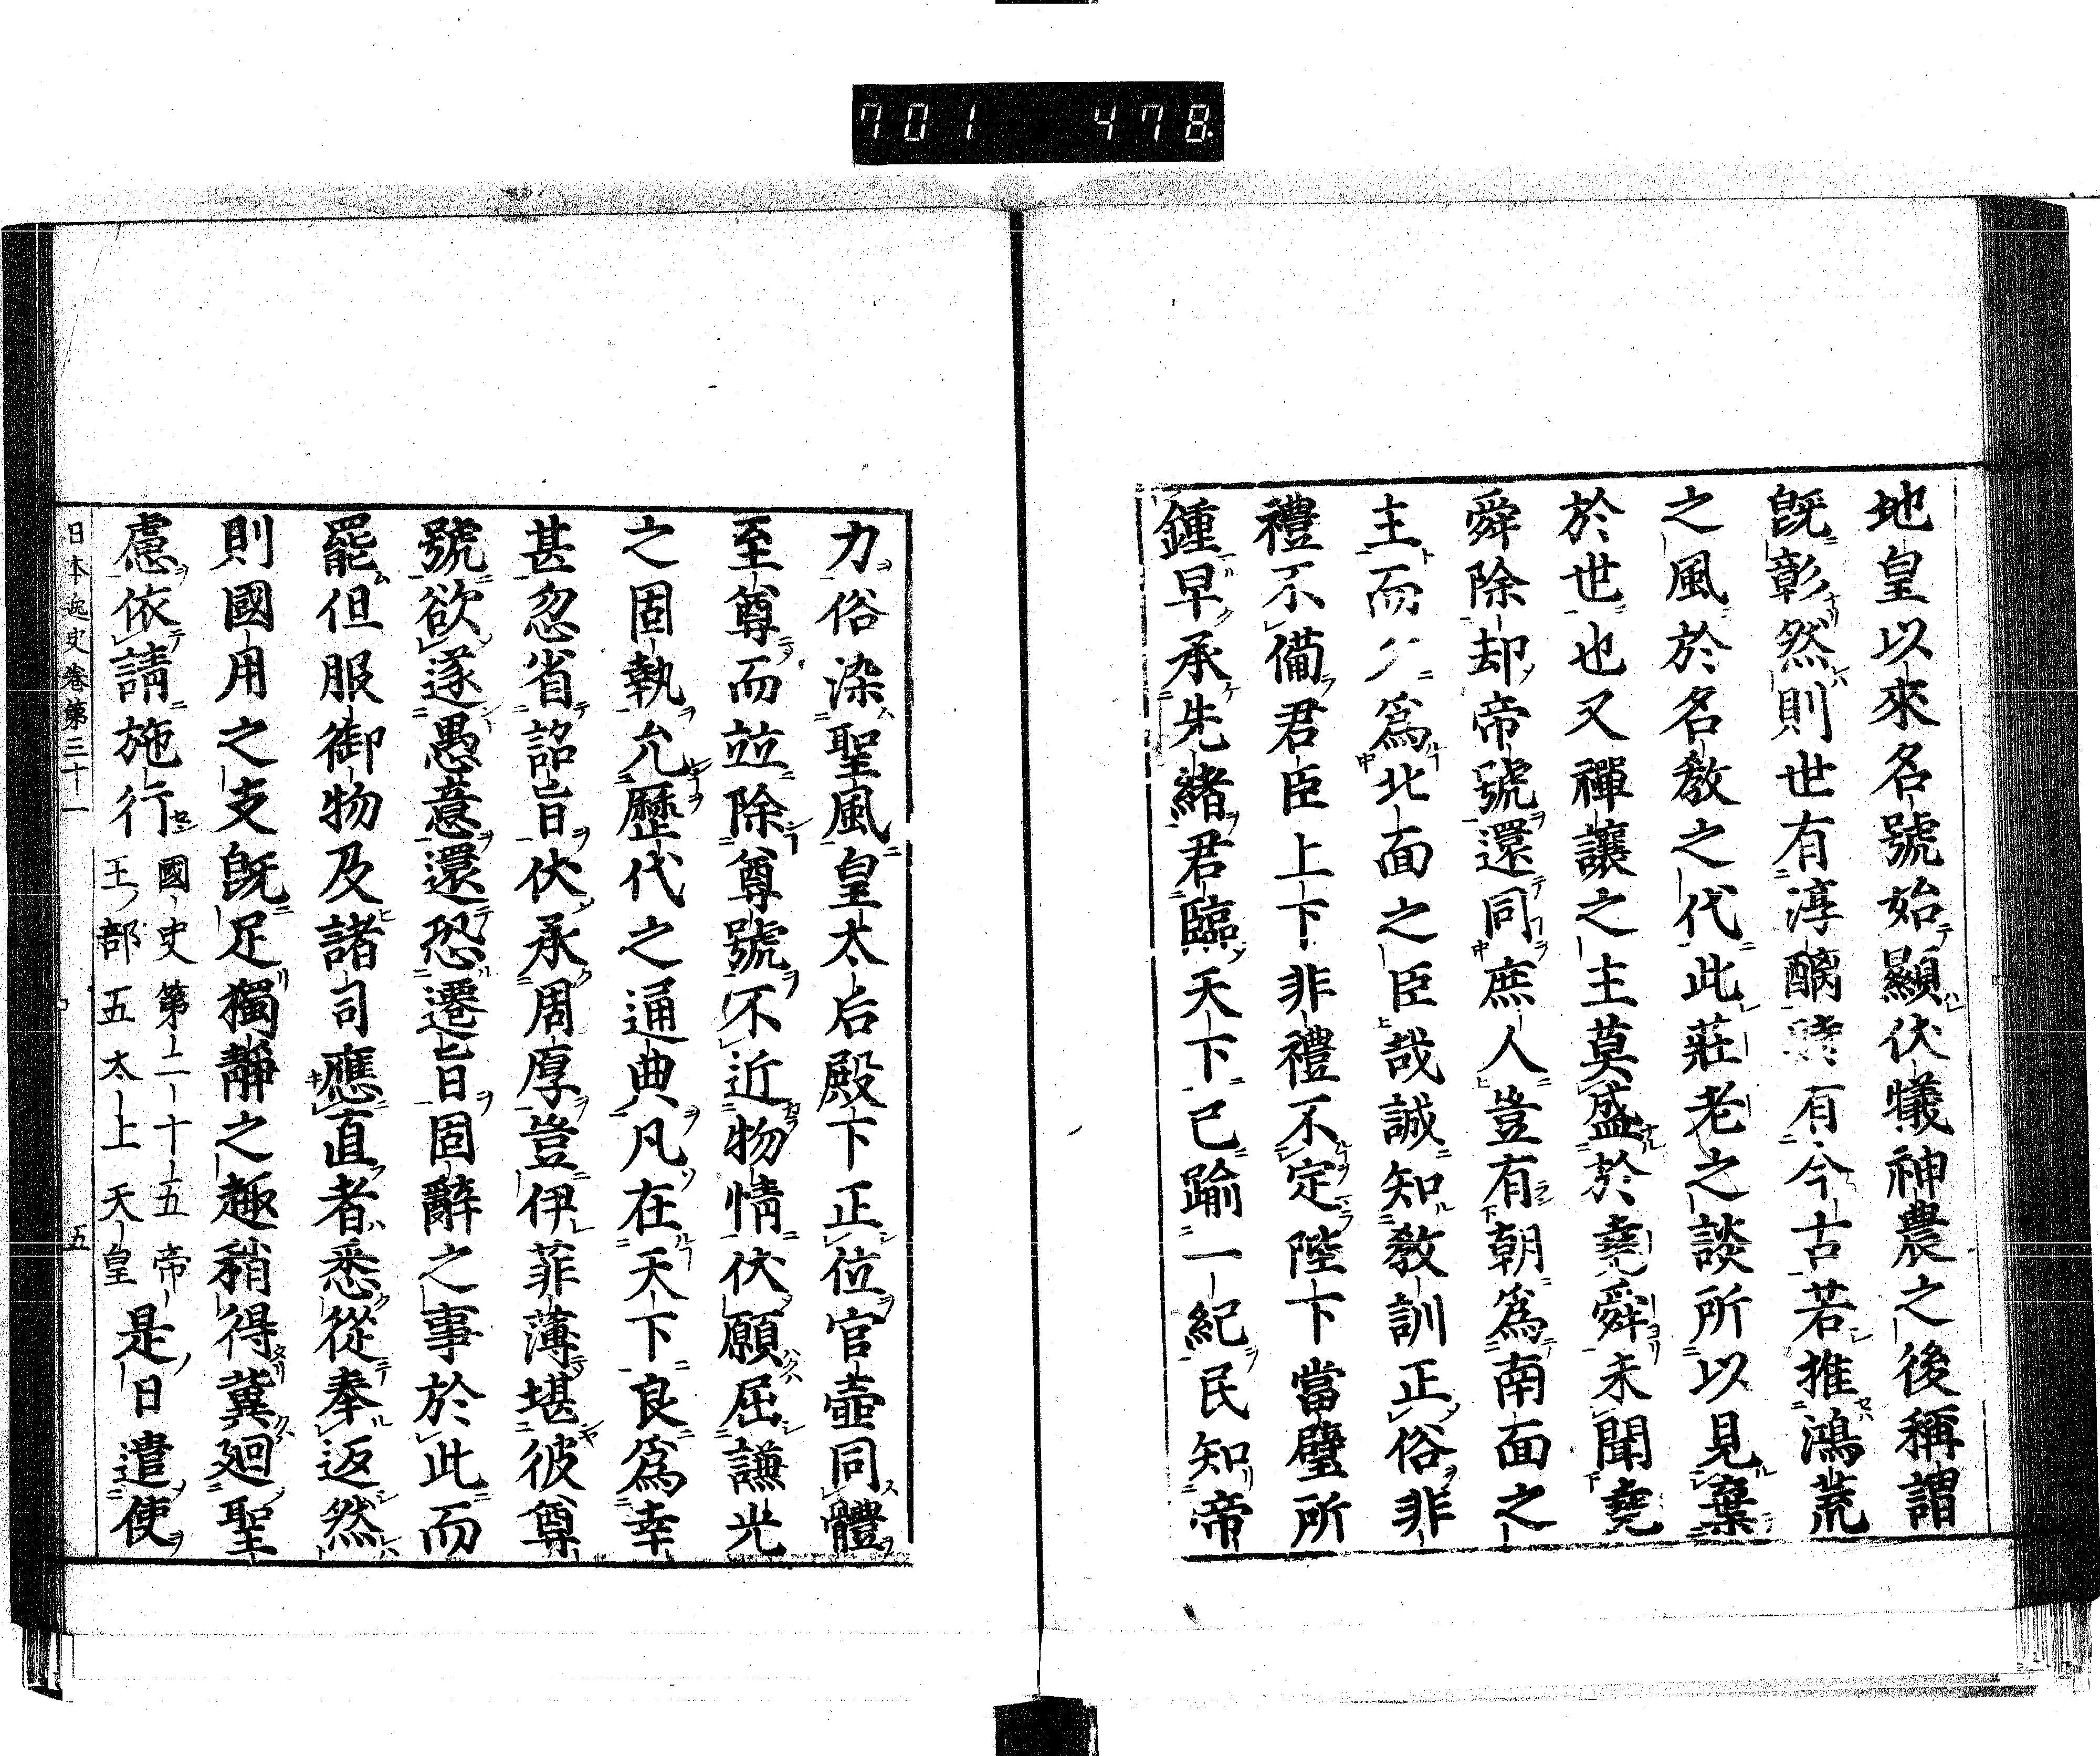 701 478
地皇以來名號始顯伏犧神農之後稱謂
既彰然則世有淳醨 有今古若推鴻荒
之風於名教之代此莊老之談所以見棄
於世也又禪讓之主莫盛於堯舜未聞堯
舜除却帝號還同庶人豈有朝爲南面之
主而夕爲北面之臣哉誠知教訓正俗非
禮不備君臣上下非禮不定陛下當璧所
鍾早承先緒君臨天下已踰一紀民知帝
力俗染聖風皇太后殿下正位官壼同體
至尊而竝除尊號不近物情伏願屈謙光
之固執允歷代之通典凡在天下良爲幸
甚忽省詔旨伏承周厚豈伊菲薄堪彼尊
號欲遂愚意還恐遷旨固辭之事於此而
罷但服御物及諸司應直者悉從奉返然
則國用之支既足獨靜之趣稍得冀廻聖
慮依請施行國史第二十五帝王部五太上天皇是日遣使
日本逸史卷第三十一 五